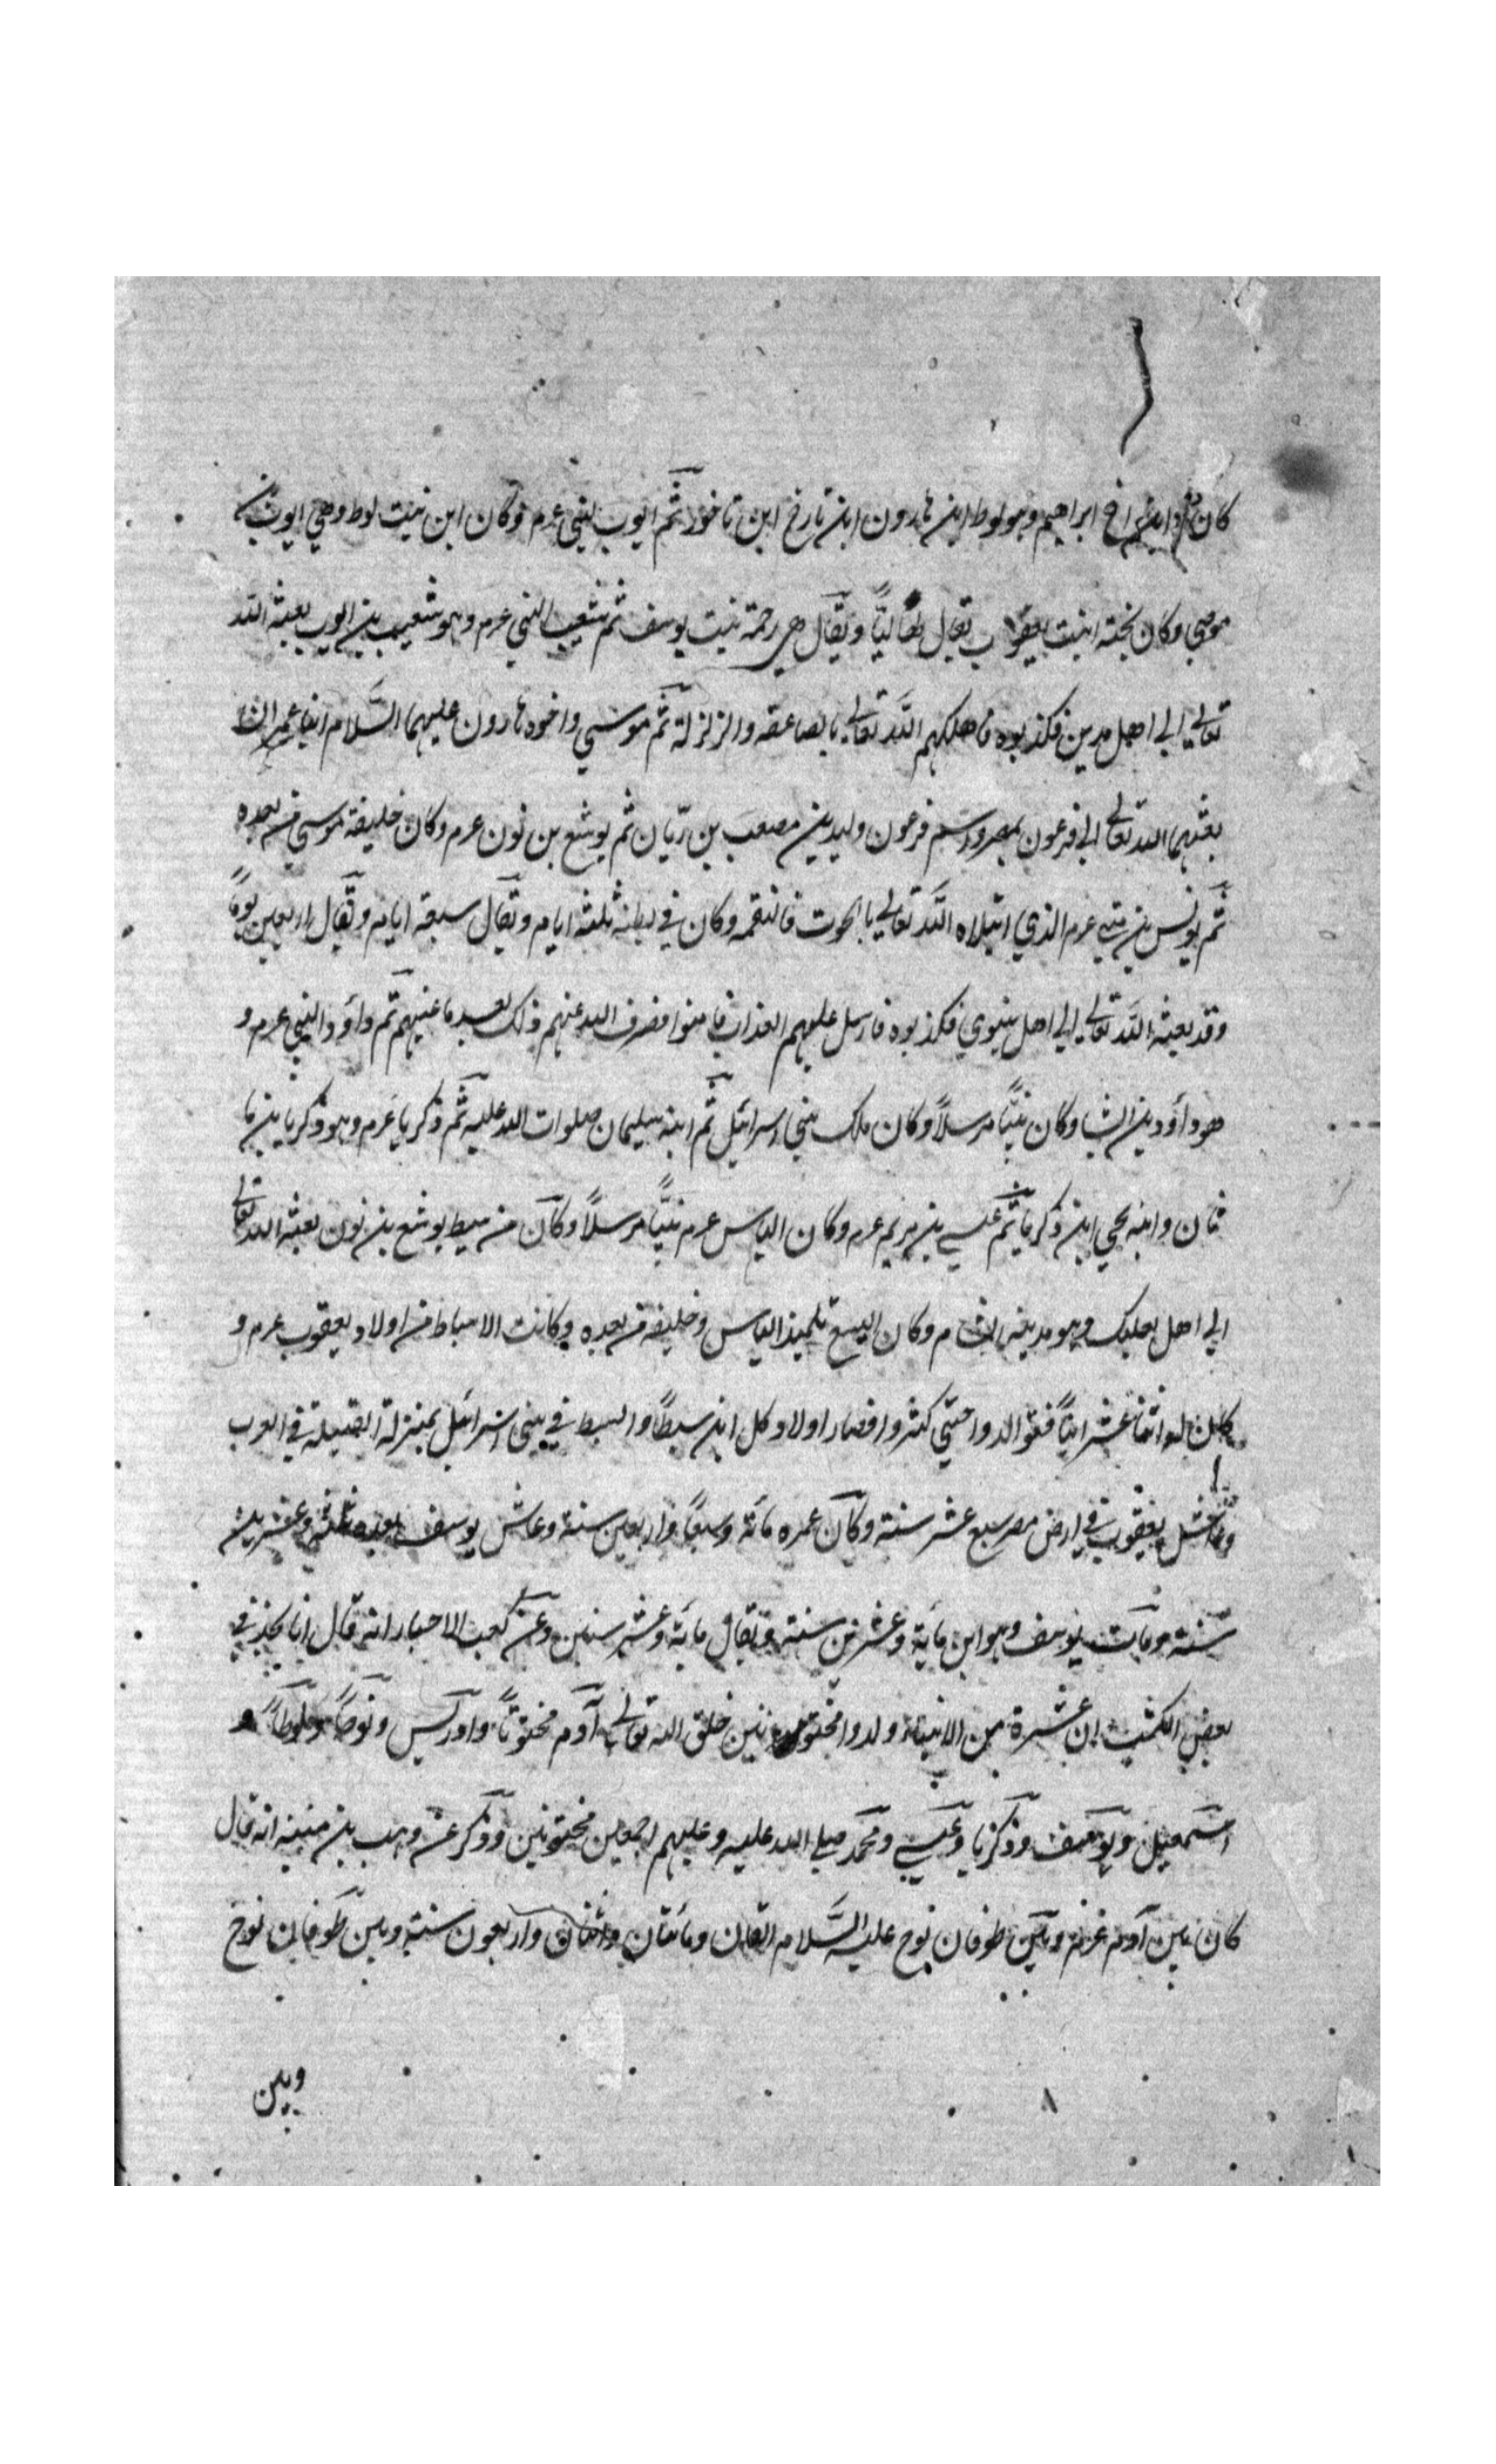 كان ابن اخ ابراهيم وهو لوط ابن هارون ابن تارخ ابن ناخور ثم ايوب النبي عرم وكان ابن بنت لوط وهي ايوب بن
موصي وكان تحته ابنت يعقوب يقال لها ليّا ويقال هي رحمة بنت يوسف ثم شعيب النبي عرم وهو شعيب بن ايوب بعثه الله
تعالى الي اهل مدين فكذبوه فاهلكهم الله تعالى بالصاعقه والزلزلة ثم موسي واخوه هارون عليهما السّلام ابنا عمران
بعثهما الله تعالى الي فرعون بمصر واسم فرعون وليد بن مصعب بن ريّان ثم يوشع بن نون عرم وكان خليفة موسي من بعده
ثم يونس بن متي عرم الذي ابتلاه الله تعالي بالحوت فالتقمه وكان في بطنه ثلثة ايام ويقال سبعة ايام ويقال اربعين يوماً
وقد بعثه الله تعالي الي اهل نينوي فكذبوه فارسل عليهم العذاب فامنوا فصرف الله عنهم ذلك بعد ما غشيهم ثم داود النبي عرم و
هو داود بن ايشا وكان نبيّاً مرسلاً وكان ملك بني اسرائيل ثم ابنه سليمان صلوات الله عليه ثم ذكريا عرم وهو ذكريا بن ما
ثان وابنه يحيي ابن ذكريا ثم عيسي بن مريم عرم وكان الياس عرم نبيّاً مرسلاً وكان من سبط يوشع بن نون بعثه الله تعالى
الي اهل بعلبك وهو مدينة الشام وكان اليسع تلميذ الياس وخليفه من بعده وكانت الاسباط من اولاد يعقوب عرم و
كان له اثنا عشر ابناً فتوالدوا حتي كثروا فصار اولاد كل ابن سبطاً والسبط في بني اسرائيل بمنزلة القبيلة في العرب
وعاش يعقوب في ارض مصر سبع عشر سنة وكان عمره مائة وسبعاً واربعين سنة وعاش يوسف بعده ثلثة وعشرين
سنة ومات يوسف وهو ابن مائة وعشرين سنة ويقال مائة وعشر سنين وعن كعب الاحبار انه قال انا نجد في
بعض الكتب ان عشرة من الانبياء ولدوا مختونين خلق الله تعالي آدم مختوناً وادريس ونوحاً ولوطاً و
اسمعيل ويوسف وذكريا وعيسي ومحمد صلي الله عليه وعليهم اجمعين مختونين وذكر عن وهب بن منبه انه قال
كان بين آدم عرم وبين طوفان نوح عليه السّلام الفان ومائتان واثنان واربعون سنة وبين طوفان نوح
وبين